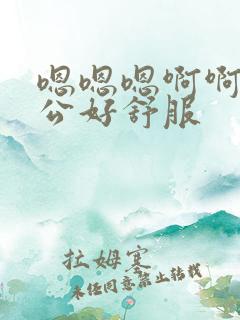 嗯嗯嗯啊啊
公好舒服
拉姆寒
未经同意禁止转载